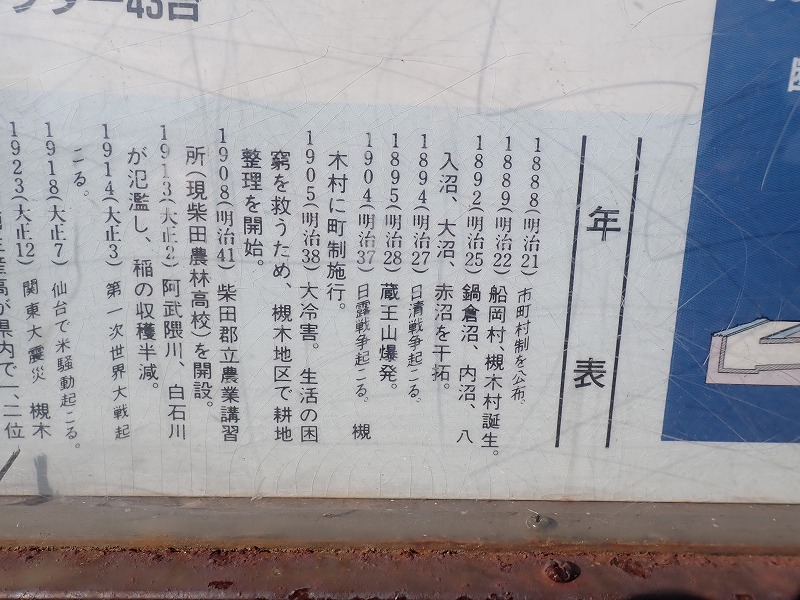 年表
1888(明治21) 市町村制を公布。
1889(明治22) 船岡村、槻木村誕生。
1892(明治25) 鍋倉沼、内沼、八
入沼、大沼、赤沼を干拓。
1894(明治27) 日清戦争起こる。
1895(明治28) 蔵王山爆発。
1904(明治37) 日露戦争起こる。 槻
木村に町制施行。
1905(明治38) 大冷害。生活の困
窮を救うため、槻木地区で耕地
整理を開始。
1908(明治41) 柴田郡立農業講習
所(現柴田農林高校)を開設。
1913(大正2) 阿武隈川、白石川
が氾濫し、稲の収穫半減。
1914(大正3) 第一次世界大戦起
こる。
1918(大正7) 仙台で米騒動起こる。
1923(大正12) 関東大震災 槻木
産高が県内で一、二位
43台